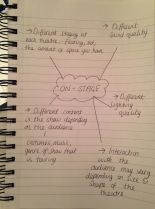 → Different layout of
each theatre - flooring, set,
the amount of space you have
→ Different
sound quality
ON-STAGE
→ Different
lighting
quality
→ Different content
in the show depending
on the audience
costumes, music,
type of show that
is touring
→ Interaction
with the
audience may vary
depending on size &
shape of the
theatre